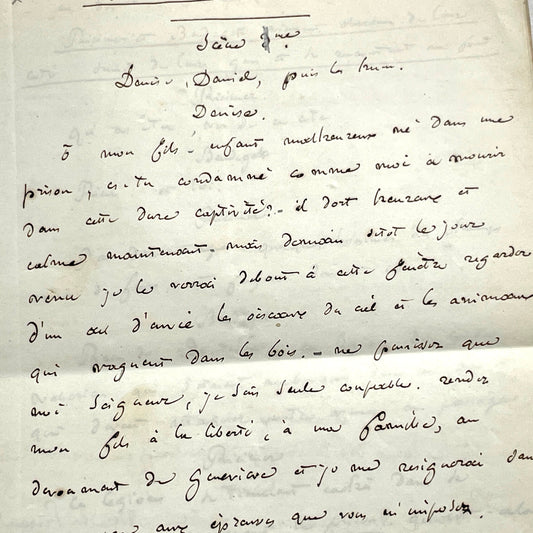 Scène 9me.
Denise, Daniel, puis le
Denise.
ô mon fils - enfant malheureux né dans une
prison, es-tu condamné comme moi à mourir
dans cette dure captivité? - il dort heureux et
calme maintenant. mais demain sitot le jour
venu je le verrai debout à cette fenêtre regarder
d'un œil d'envie les oiseaux du ciel et les animaux
qui vaguent dans les bois. - ne punissez que
moi Seigneur, je suis seule coupable. rendez
mon fils à la liberté, à ma famille, au
devouement de Geneviève et je me resignerai dans
aux épreuves que vous m'imposez